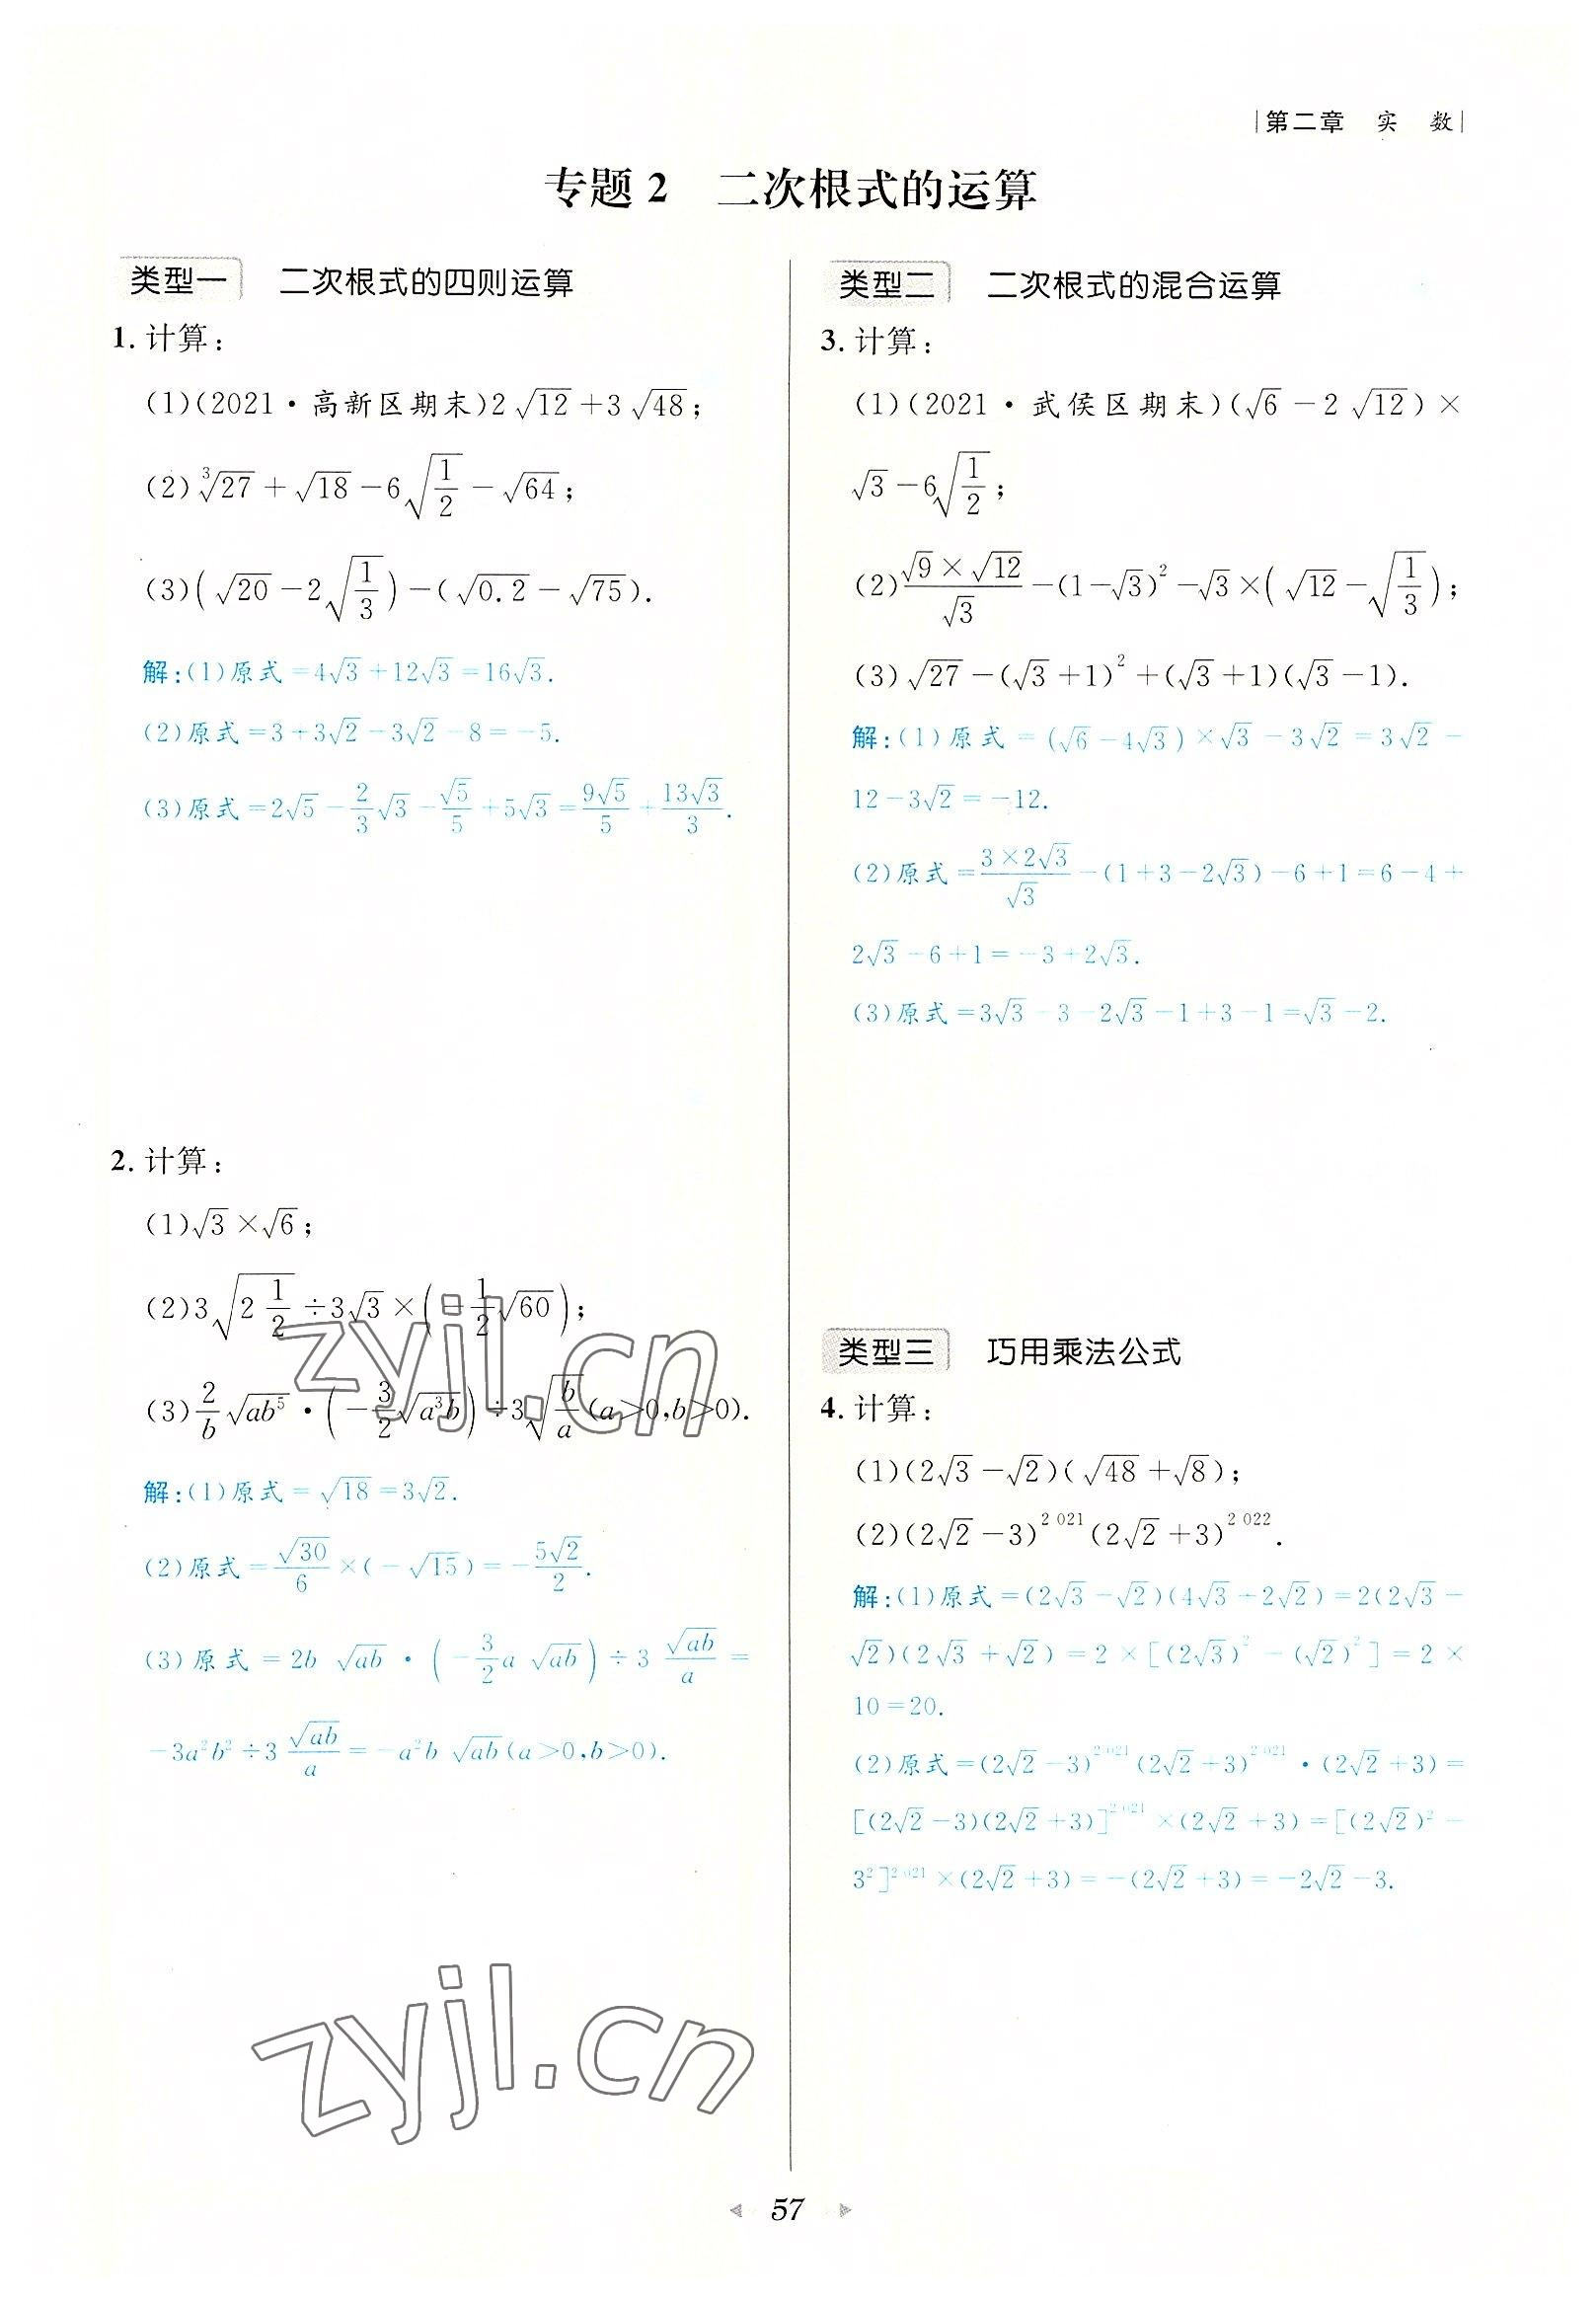 第二章 实 数
专题2 二次根式的运算
类型一 二次根式的四则运算
1. 计算：
(1)(2021·高新区期末)2√12+3√48；
(2)∛27+√18-6√(1/2)-√64；
(3)(√20-2√(1/3))-(√0.2-√75).
解：(1)原式=4√3+12√3=16√3.
(2)原式=3+3√2-3√2-8=-5.
(3)原式=2√5-(2/3)√3-√5/5+5√3=9√5/5+13√3/3.
2. 计算：
(1)√3×√6；
(2)3√(2 1/2)÷3√3×(-(1/2)√60)；
(3)(2/b)√(ab⁵)·(-(3/2)√(a³b))÷3√(b/a)(a>0,b>0).
解：(1)原式=√18=3√2.
(2)原式=√30/6×(-√15)=-5√2/2.
(3)原式=2b√(ab)·(-(3/2)a√(ab))÷3 √(ab)/a=
-3a²b²÷3 √(ab)/a=-a²b√(ab)(a>0,b>0).
类型二 二次根式的混合运算
3. 计算：
(1)(2021·武侯区期末)(√6-2√12)×
√3-6√(1/2)；
(2)(√9×√12)/√3-(1-√3)²-√3×(√12-√(1/3))；
(3)√27-(√3+1)²+(√3+1)(√3-1).
解：(1)原式=(√6-4√3)×√3-3√2=3√2-
12-3√2=-12.
(2)原式=(3×2√3)/√3-(1+3-2√3)-6+1=6-4+
2√3-6+1=-3+2√3.
(3)原式=3√3-3-2√3-1+3-1=√3-2.
类型三 巧用乘法公式
4. 计算：
(1)(2√3-√2)(√48+√8)；
(2)(2√2-3)^2 021(2√2+3)^2 022.
解：(1)原式=(2√3-√2)(4√3+2√2)=2(2√3-
√2)(2√3+√2)=2×[(2√3)²-(√2)²]=2×
10=20.
(2)原式=(2√2-3)^2 021(2√2+3)^2 021·(2√2+3)=
[(2√2-3)(2√2+3)]^2 021×(2√2+3)=[(2√2)²-
3²]^2 021×(2√2+3)=-(2√2+3)=-2√2-3.
zyjl.cn
zyjl.cn
57